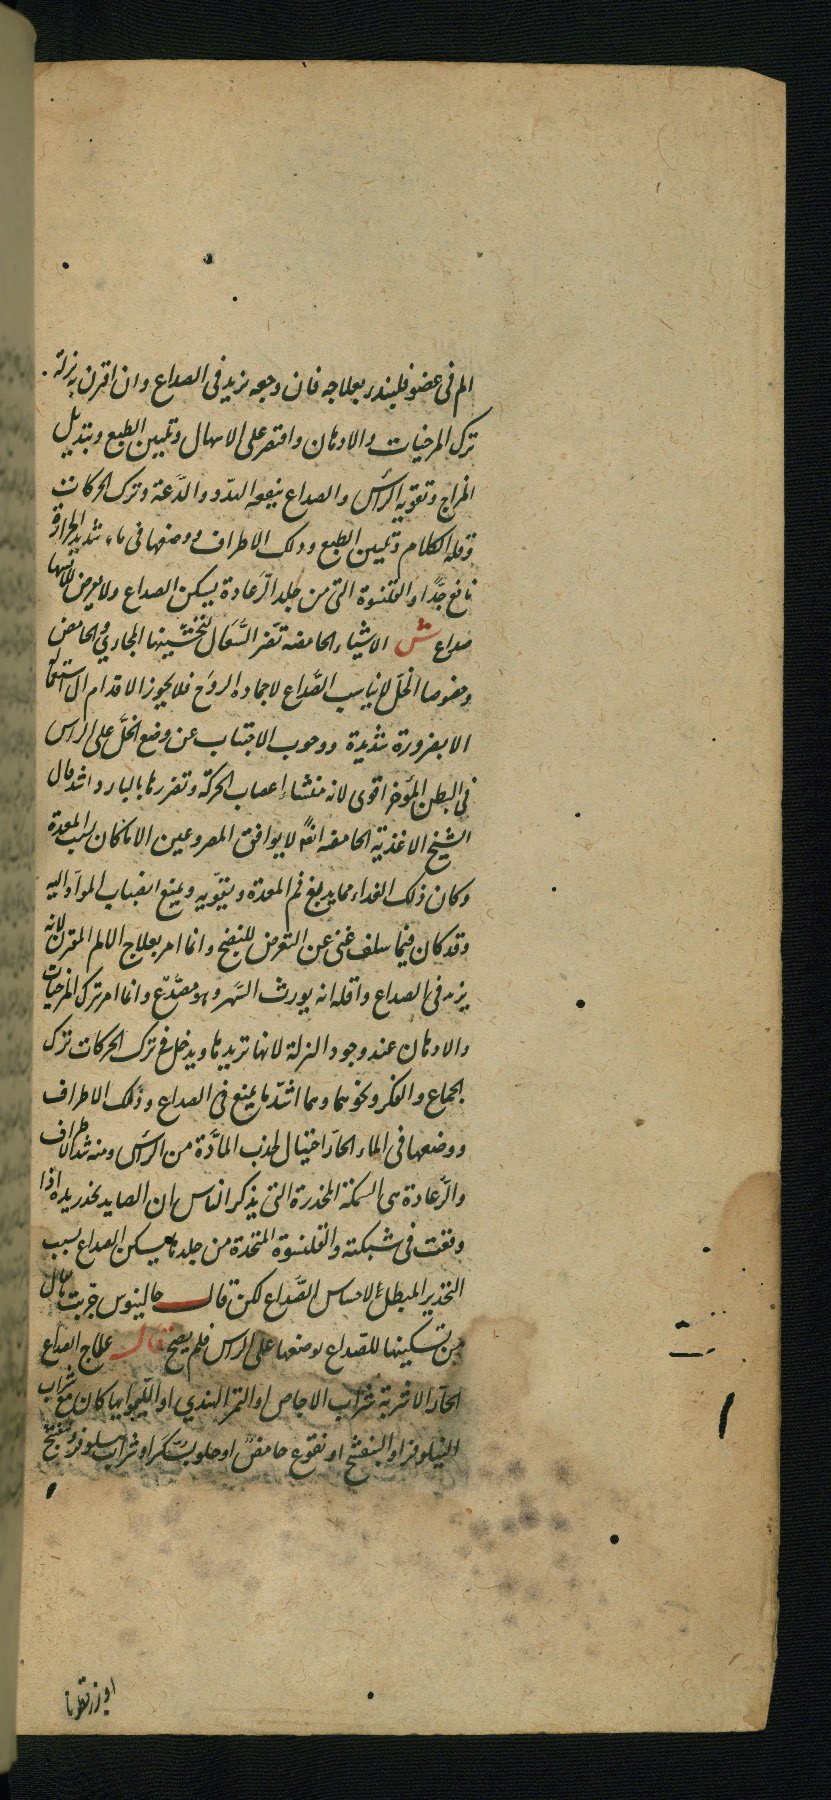 الم فى عضو فليبدر بعلاجه فان وجعه يزيد فى الصداع وان اقترن به نزلة
ترك المرخيات والادهان واقتصر على الاسهال وتليين الطبع وتبديل
المزاج وتقوية الراس والصداع ينفعه الهدو والدعة وترك الحركات
وقلة الكلام وتليين الطبع ودلك الاطراف ووضعها فى ماء شديد الحرارة
نافع جدًا والقلنسوة التى من جلد الرعادة يسكن الصداع ولا يعرض للابسها
صداع ش الاشياء الحامضه تضر السعال لتخشينها المجارى والحامض
وخصوصا الخل لا يناسب الصداع لاجماده الروح فلا يجوز الاقدام الى استعماله
الا بضرورة شديدة ووجوب الاجتناب عن وضع الخل على الراس
فى البطن المؤخر اقوى لانه منشاء اعصاب الحركة وتضررها بالبارد اشد قال
الشيخ الاغذية الحامضه ايضًا لا يوافق المصروعين الا ما كان بسبب المعدة
وكان ذلك الغداء مما يدبغ فم المعدة ويقويه ويمنع انصباب المواد اليه
وقد كان فيما سلف غنى عن التعرض للنضج وانما امر بعلاج الالم المقترن لانه
يزيد فى الصداع واقله انه يورث السهر وهو مصدع وانما امر بترك المرخيات
والادهان عند وجود النزلة لانها تزيدها ويدخل فى ترك الحركات ترك
الجماع والفكر ونحوهما وهما اشد ما يمنع فى الصداع ودلك الاطراف
ووضعها فى الماء الحار احتيال لجذب المادة من الراس ومنه شد الاطراف
والرعادة هى السمكة المخدرة التى يذكر الناس ان الصايد تخدر يده اذا
وقعت فى شبكته والقلنسوة المتخذة من جلدها يسكن الصداع بسبب
التخدير المبطل لاحساس الصداع لكن قال جالينوس جربت ما قال
من تسكينها للصداع بوضعها على الراس فلم يصح قال علاج الصداع
الحار الاشربة شراب الاجاص او التمر الهندي او الليمو ايها كان مع شراب
النيلوفر او البنفسج او نقوع حامض او حلو بسكر او شراب نيلوفر وبنفسج
او بزرقطونا